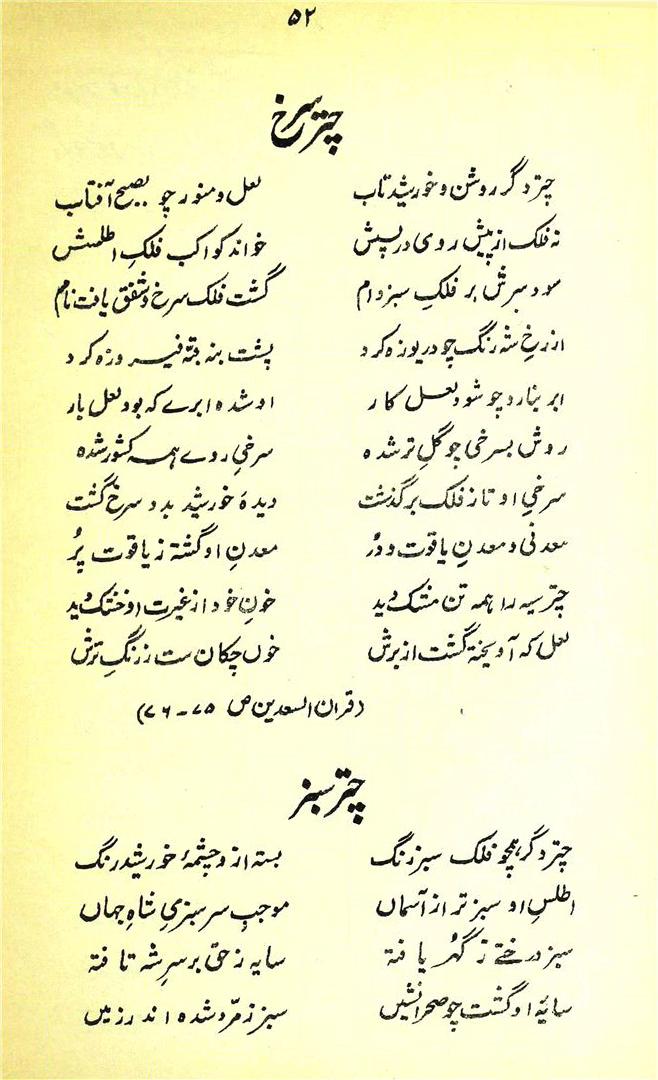 ۵۲
چترِ سرخ
چتر دگر روشن و خورشید تاب لعل و منور چو بصبح آفتاب
نہ فلک از پیش روی در پسش خواند کواکب فلکِ اطلسش
سود سرش بر فلکِ سبز دام گشت فلک سرخ و شفق یافت نام
از رخِ شہ رنگ چو دریوزہ کرد پشت بنہ قبّہ فیروزہ کرد
ابر بنارد چو شود لعل کار او شدہ ابرے کہ بود لعل بار
روش بسرخی چو گلِ تر شدہ سرخیِ روے ہمہ کشور شدہ
سرخیِ او تا ز فلک برگذشت دیدۂ خورشید بدو سرخ گشت
معدنی و معدنِ یاقوت و دُر معدنِ او گشتہ ز یاقوت پُر
چتر سیہ را ہمہ تن مشک دید خونِ خود از غیرت او خشک دید
لعل کہ آویختہ گشت از برش خوں چکان ست ز رنگِ ترش
(قران السعدین ص ۷۵ - ۷۶)
چتر سبز
چتر دگر ہمچو فلک سبز رنگ بستہ از و چشمۂ خورشید رنگ
اطلسِ او سبز تر از آسماں موجبِ سر سبزیِ شاہِ جہاں
سبز درختے ز گہر یافتہ سایہ ز حق بر سرِ شہ تافتہ
سایۂ او گشت چو صحرا نشیں سبز زمرّد شدہ اندر زمیں